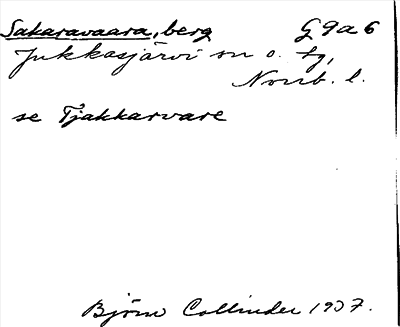 Sakaravaara, berg G 9 a 6
Jukkasjärvi sn o. tg,
Norrb. l.
se Tjakkarvare
Björn Collinder 1937.